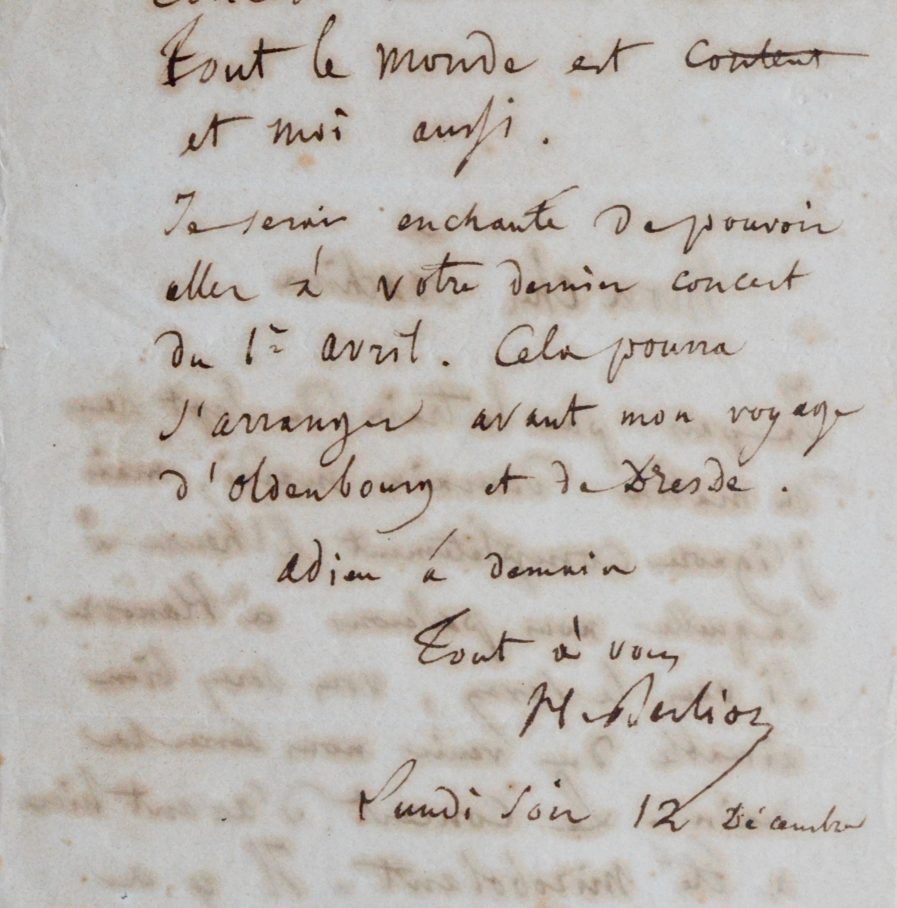 Tout le monde est content
et moi aussi.
Je serais enchanté de pouvoir
aller à votre dernier concert
du 1er avril. Cela pourra
s'arranger avant mon voyage
d'Oldenbourg et de Dresde.
adieu à demain
Tout à vous
H. Berlioz
Lundi soir 12 Décembre